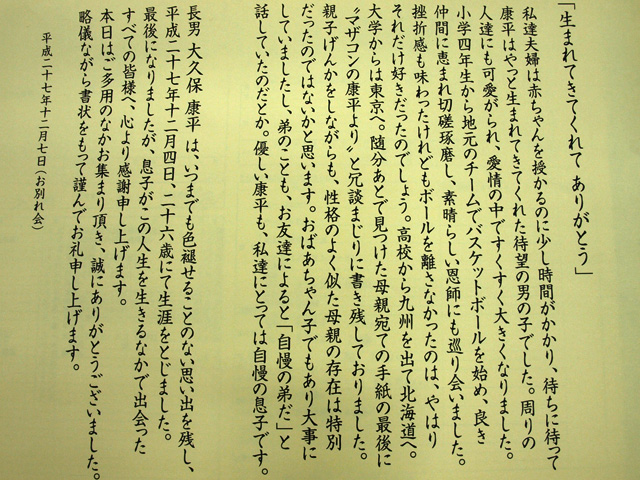 「生まれてきてくれて ありがとう」
私達夫婦は赤ちゃんを授かるのに少し時間がかかり、待ちに待って
康平はやっと生まれてきてくれた待望の男の子でした。周りの
人達にも可愛がられ、愛情の中ですくすく大きくなりました。
小学四年生から地元のチームでバスケットボールを始め、良き
仲間に恵まれ切磋琢磨し、素晴らしい恩師にも巡り会いました。
挫折感も味わったけれどもボールを離さなかったのは、やはり
それだけ好きだったのでしょう。高校から九州を出て北海道へ。
大学からは東京へ。随分あとで見つけた母親宛ての手紙の最後に
〝マザコンの康平より〟と冗談まじりに書き残しておりました。
親子げんかをしながらも、性格のよく似た母親の存在は特別
だったのではないかと思います。おばあちゃん子でもあり大事に
していましたし、弟のことも、お友達によると「自慢の弟だ」と
話していたのだとか。優しい康平も、私達にとっては自慢の息子です。
長男 大久保 康平 は、いつまでも色褪せることのない思い出を残し、
平成二十七年十二月四日、二十六歳にて生涯をとじました。
最後になりましたが、息子がこの人生を生きるなかで出会った
すべての皆様へ、心より感謝申し上げます。
本日はご多用のなかお集まり頂き、誠にありがとうございました。
略儀ながら書状をもって謹んでお礼申し上げます。
平成二十七年十二月七日（お別れ会）